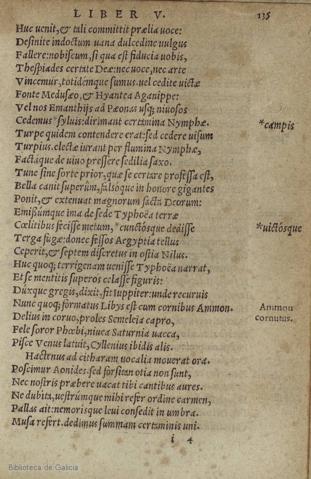 LIBER V. 135
Huc uenit, & tali committit prælia uoce:
Desinite indoctum uana dulcedine uulgus
Fallere: nobiscum, si qua est fiducia uobis,
Thespiades certate Deæ: nec uoce, nec arte
Vincemur, totidemque sumus. uel cedite uictæ
Fonte Medusæo, & Hyantea Aganippe:
Vel nos Emanthijs ad Pæonas usque niuosos
Cedemus *syluis: dirimant certamina Nymphæ. *campis
Turpe quidem contendere erat: sed cedere uisum
Turpius. electæ iurant per flumina Nymphæ,
Factaque de uiuo pressere sedilia saxo.
Tunc sine sorte prior, quæ se certare professa est,
Bella canit superûm, falsoque in honore gigantes
Ponit, & extenuat magnorum facta Deorum:
Emissumque ima de sede Typhoëa terræ
Cœlitibus fecisse metum, *cunctosque dedisse *uictosque
Terga fugæ: donec fessos Aegyptia tellus
Ceperit, & septem discretus in ostia Nilus.
Huc quoque terrigenam uenisse Typhoëa narrat,
Et se mentitis superos celasse figuris:
Duxque gregis, dixit, fit Iuppiter: unde recuruis
Nunc quoque formatus Libys est cum cornibus Ammon. Ammon
Delius in coruo, proles Semeleia capro, cornutus.
Fele soror Phœbi, niuea Saturnia uacca,
Pisce Venus latuit, Cyllenius ibidis alis.
Hactenus ad citharam uocalia mouerat ora.
Poscimur Aonides: sed forsitan otia non sunt,
Nec nostris præbere uacat tibi cantibus aures.
Ne dubita, uestrumque mihi refer ordine carmen,
Pallas ait: nemorisque leui consedit in umbra.
Musa refert. dedimus summam certaminis uni.
i 4
Biblioteca de Galicia